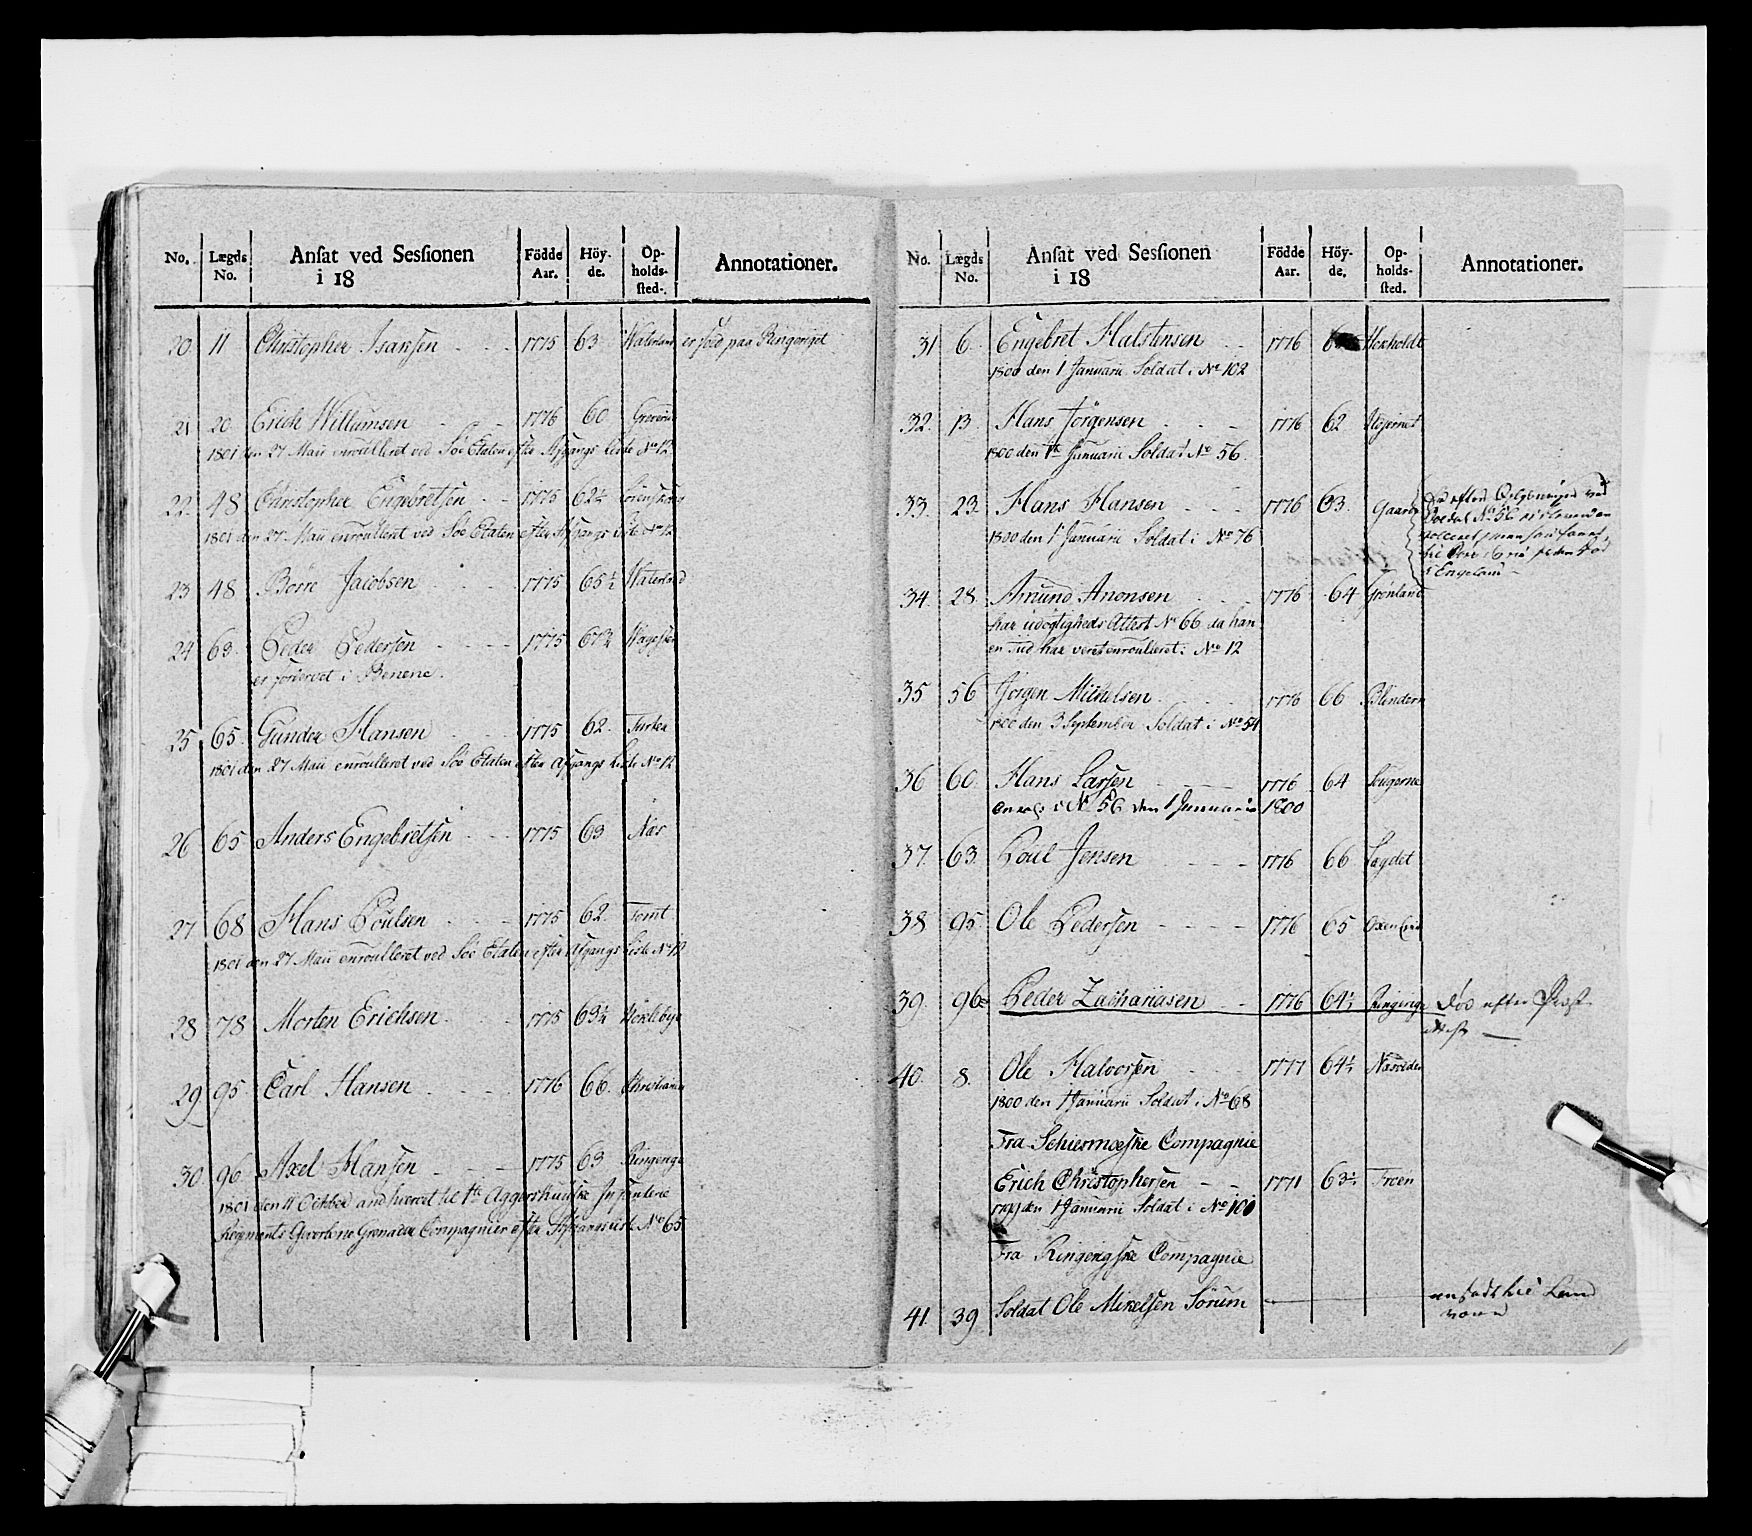 No. Lægds No. Ansat ved Sessionen i 18 Födde Aar. Höy-de. Op-holds-sted. Annotationer.
20. 11 Christopher Isansen 1775 63 Waterland er föed paa Ringeriget
21 20. Erich Willumsen 1776 60
1801 den 27 Maii enroulleret ved Söe Etaten efter Afgangs Liste No 12.
22. 48 Christopher Engebretsen 1775 62½
1801 den 27. Maii enroullert ved Söe Etaten efter Afgangs Liste No 12
23 48 Börre Jacobsen 1775 65½ Waterland
24 63. Peder Pedersen 1775 67¾
er forvervet i Benene.
25 65. Gunder Hansen 1775 62.
1801 den 27 Maii enroulleret ved Söe Etaten efter Afgangs Liste No 12
26 65 Anders Engebretsen 1775 63 Næs
27 68 Hans Poulsen 1775 62. Tomt
1801 den 27 Maii enroulleret ved Söe Etaten efter Afgangs Liste No 12
28 78 Morten Erichsen. 1775 63¼
29 95 Carl Hansen 1776 66. Christiania
30 96 Axel Hansen 1775 63 Ringerige
1801 den 11 October and hvervet til 1te Aggershuuske Infanterie
Regiments Gevorbne Grenadeer Compagnier efter Afgangs Liste No 65
No. Lægds No. Ansat ved Sessionen i 18 Födde Aar. Höy-de. Op-holds-sted. Annotationer.
31 6. Engebret Halstensen 1776 Hexholdt
1800 den 1 Januarii Soldat i No 102
32. 13. Hans Jörgensen 1776 62
1800 den 1te Januarii Soldat No 56.
33. 23. Hans Hansen 1776 63. Gaarder
1800 den 1 Januarii Soldat i No 76
Soldat No 56
i Engeland
34. 28. Amund Anonsen 1776 64 Grönland
har udögtigheds Attest No 66 da han
en Tid har veret enroulleret i No 12
35 56 Jörgen Mickelsen 1776 66 Blindern
1800 den 3 September Soldat i No 54
36 60. Hans Larsen 1776 64
i No 56 den 1 Januarii 1800
37. 63. Poul Jensen 1776 66 Lagdet
38 95. Ole Pedersen 1776 65
39. 96 Peder Zachariasen 1776 64½ Ringerige Död efter Præst
Attest
40. 8. Ole Halvorsen 1777 64½
1800 den 1 Januarii Soldat i No 68
Fra Schiermoeske Compagnie
Erich Christophersen 1771 63½ Froen
den 1 Januarii Soldat i No 100
Fra Ringerigske Compagnie
41. 39 Soldat Ole Mikelsen Sörum ansadt til Land
værn